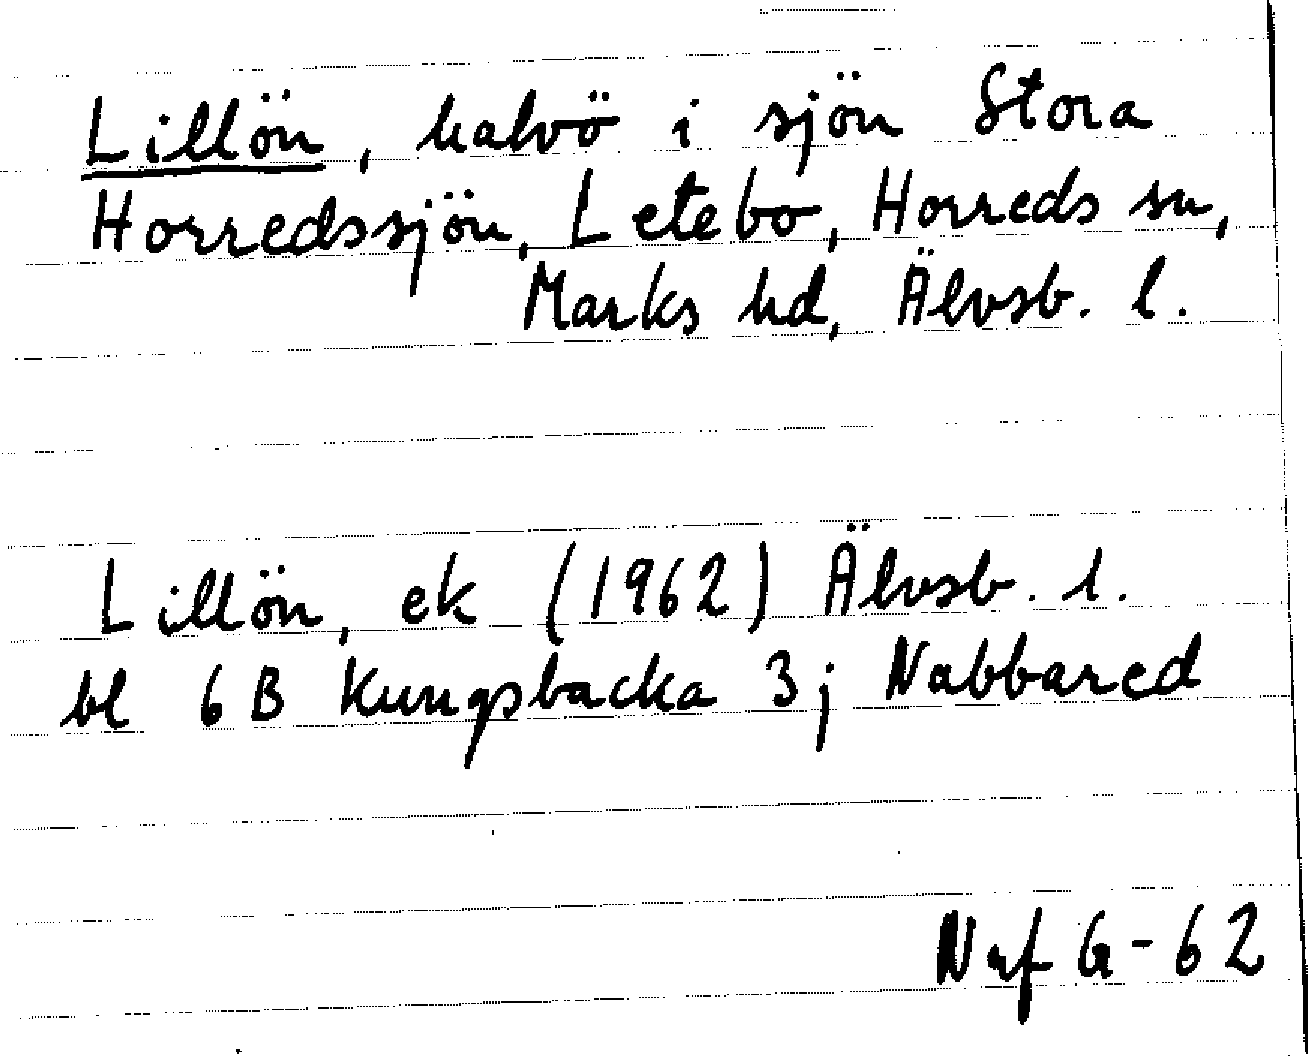 Lillön, halvö i sjön Stora
Horredssjön, Letebo, Horreds sn,
Marks hd, Älvsb. l.
Lillön, ek (1962) Älvsb. l.
bl 6B Kungsbacka 3j Nabbared
Naf G-62